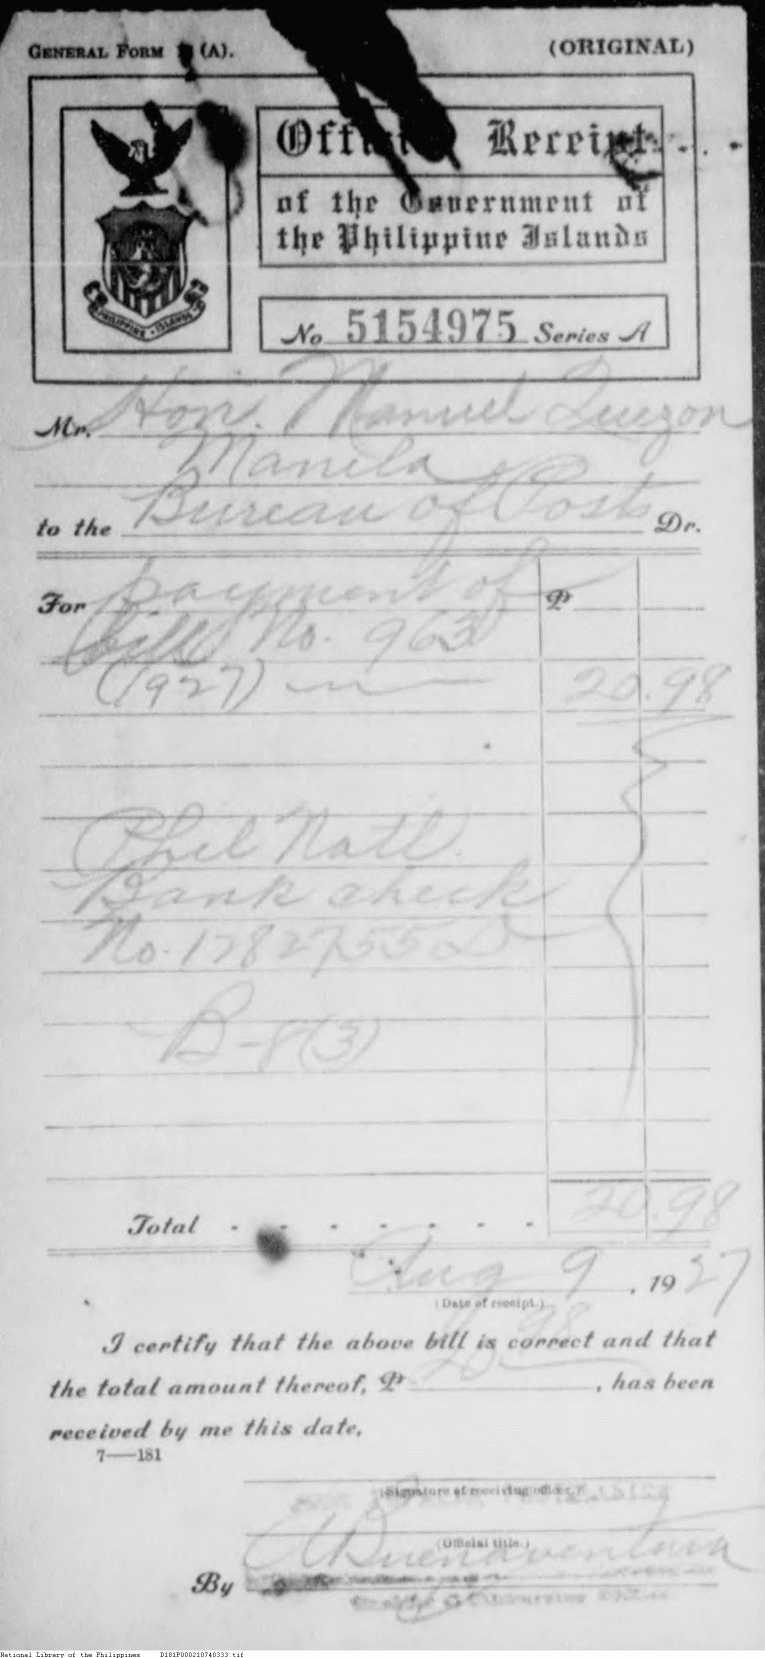 GENERAL FORM (A).
(ORIGINAL)
Official Receipt
of the Government of
the Philippine Islands
PHILIPPINE ISLANDS
No 5154975 Series A
Mr. Hon. Manuel Quezon
Manila
to the Bureau of Posts Dr.
For payment of ₱
bill No. 963
(1927) 20.98
Phil Natl.
Bank check
No. 1782755
B-8(3)
Total - - - - - - - 20.98
Aug 9, 1927
(Date of receipt.)
I certify that the above bill is correct and that
the total amount thereof, ₱ 20.98, has been
received by me this date.
7—181
(Signature of receiving officer.)
(Official title.)
By A Buenaventura
National Library of the Philippines D181P000210740333.tif